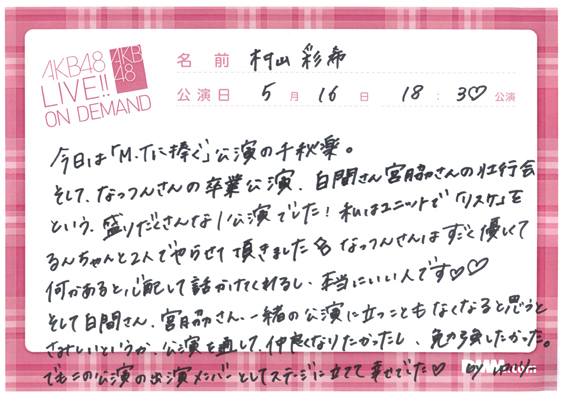 AKB48
LIVE!!
ON DEMAND
AKB
48
名前 村山 彩希
公演日 5月16日 18:30公演
今日は「M.Tに捧ぐ」公演の千秋楽。
そして、なっつんさんの卒業公演、白間さん宮脇さんの壮行会
という、盛りだくさんな1公演でした!私はユニットで「リスケ」を
るんちゃんと2人でやらせて頂きました なっつんさんはすごく優しくて
何かあると心配して話かけてくれるし、本当にいい人です♡♡
そして白間さん、宮脇さん、一緒の公演に立つこともなくなると思うと
さみしいというか、公演を通して、仲良くなりたかったし、勉強したかった。
でもこの公演の出演メンバーとしてステージに立てて幸せでした♡ by
DMM.com